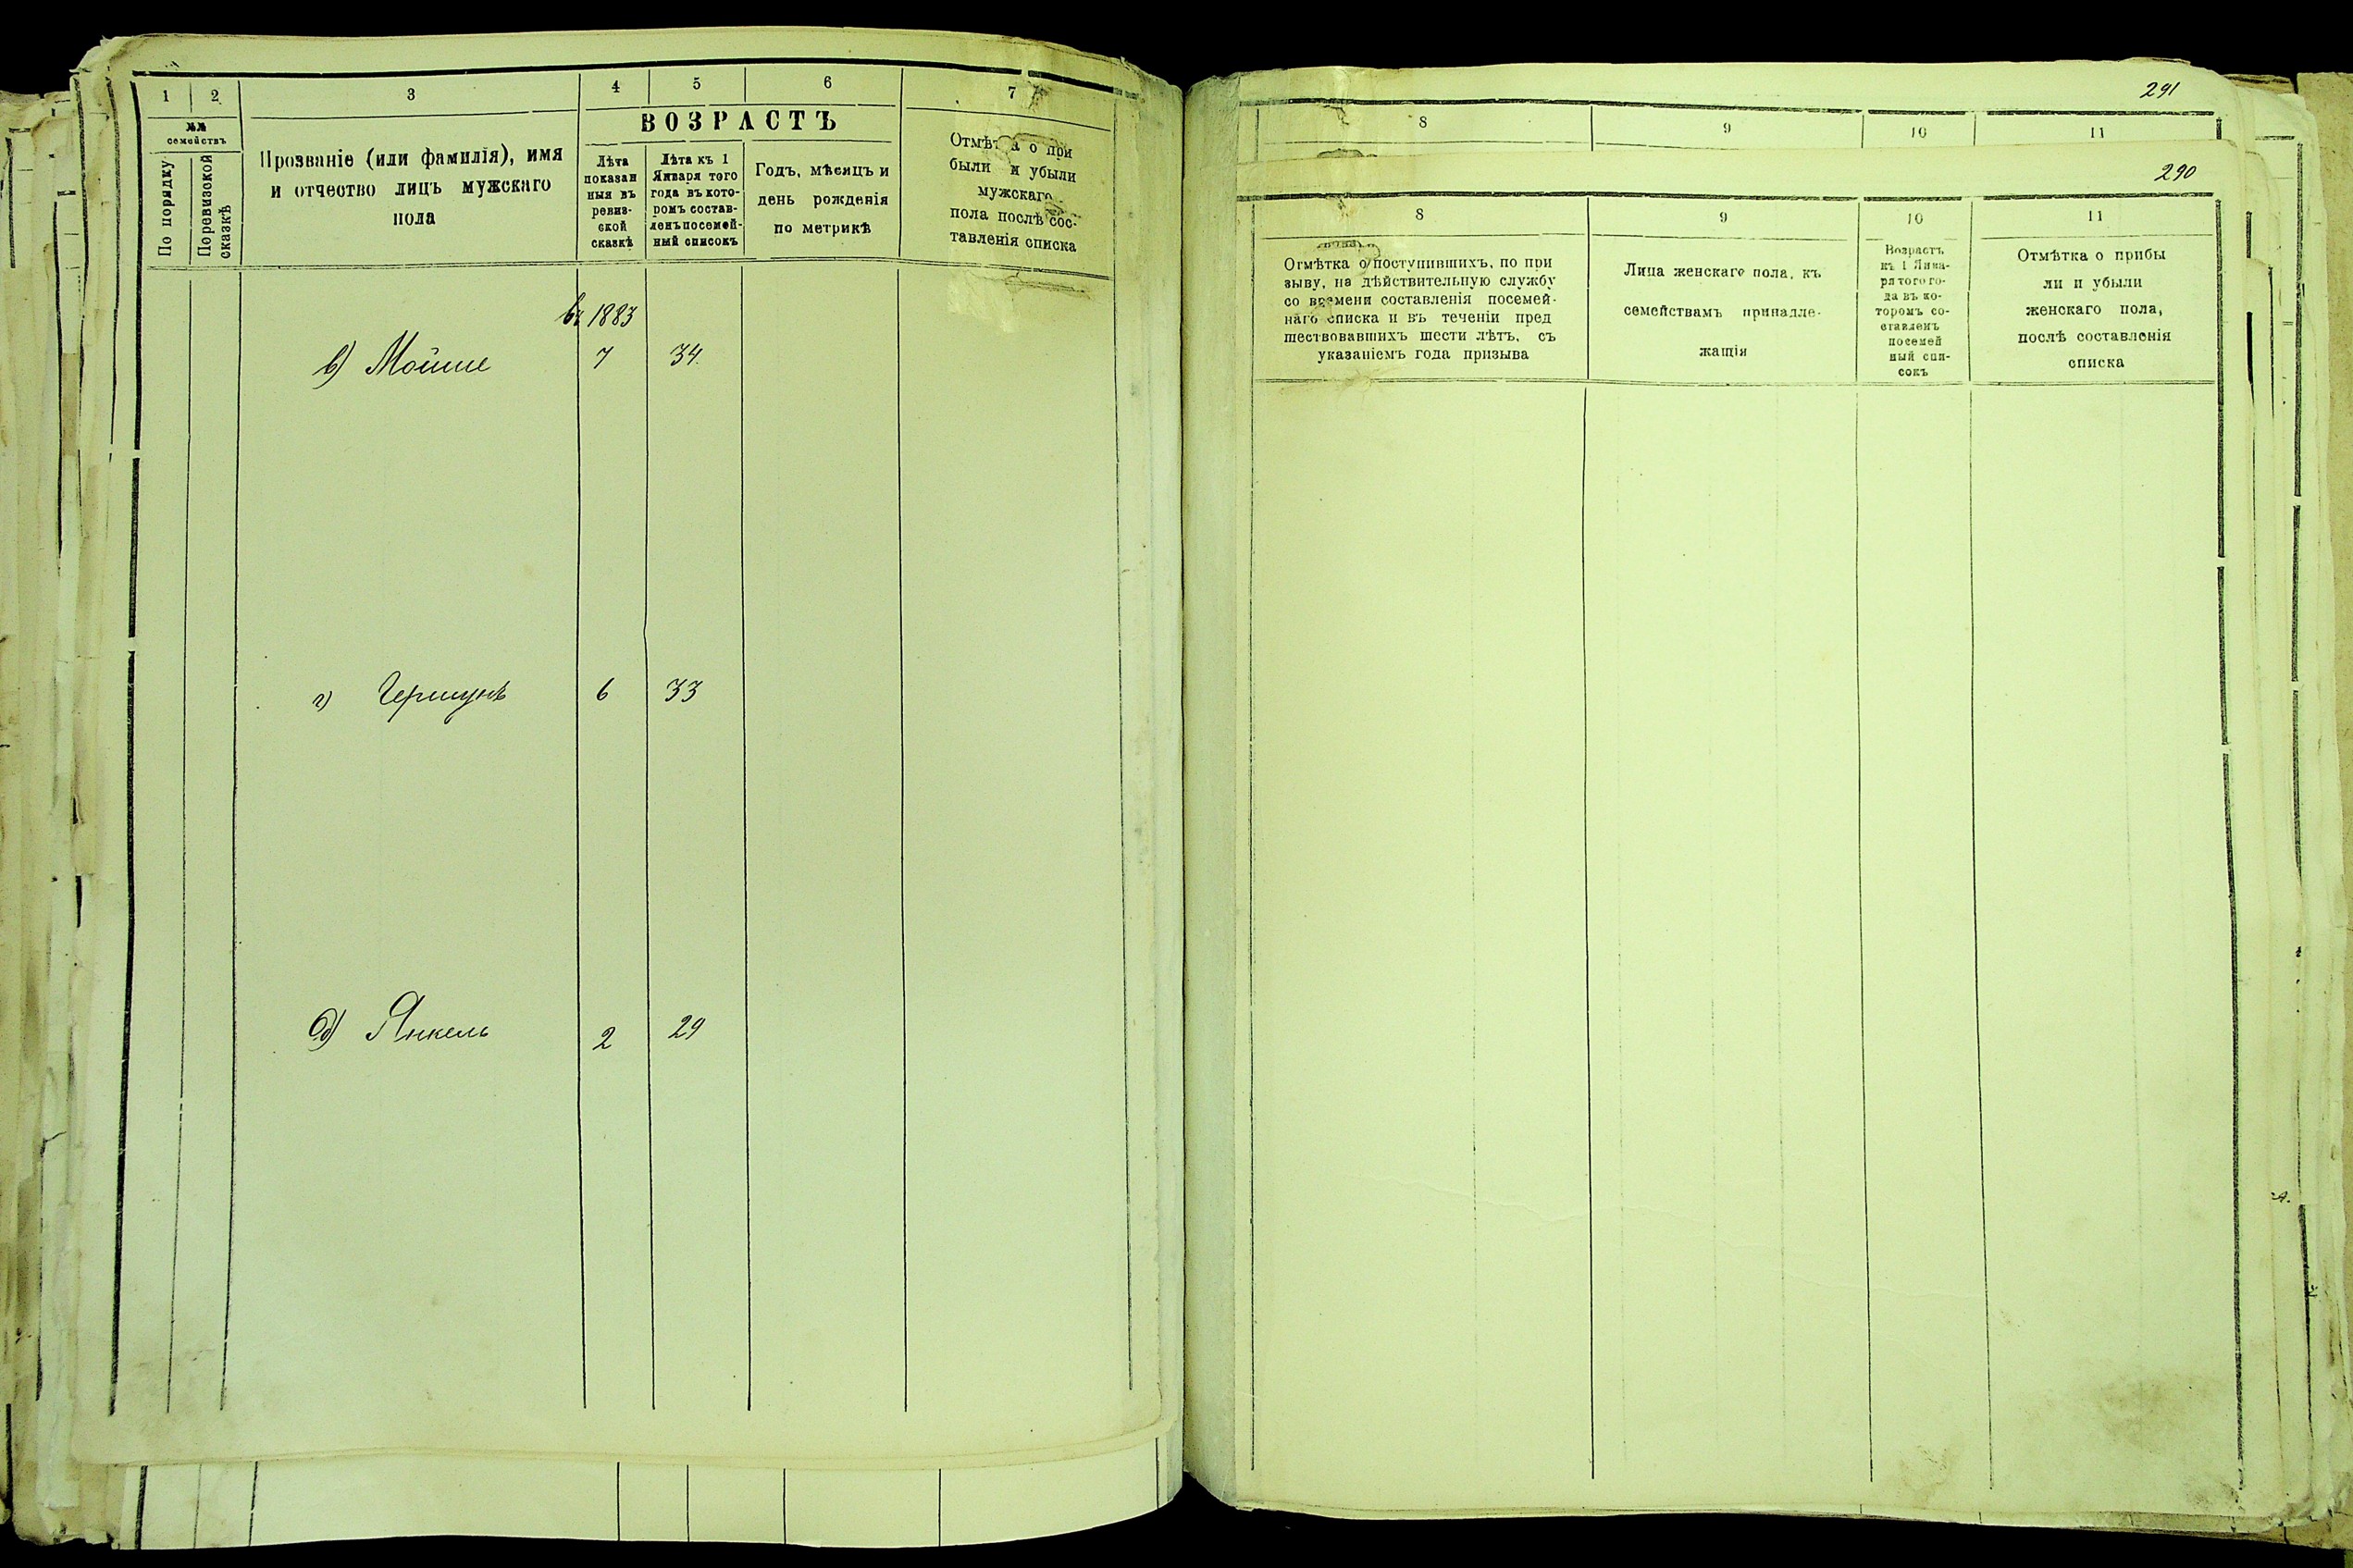 1 2 3 4 5 6 7
№№ семействъ
По порядку
По ревизской сказкѣ
Прозваніе (или фамилія), имя
и отчество лицъ мужскаго
пола
ВОЗРАСТЪ
Лѣта
показан
ныя въ
ревиз-
ской
сказкѣ
Лѣта къ 1
Января того
года въ кото-
ромъ состав-
ленъ посемей-
ный списокъ
Годъ, мѣсяцъ и
день рожденія
по метрикѣ
Отмѣтка о при
были и убыли
мужскаго
пола послѣ сос-
тавленія списка
въ 1883
в) Мойше 7 34.
г) Гершунъ 6 33
д) Янкель 2 29
291
8 9 10 11
290
8 9 10 11
Отмѣтка о поступившихъ, по при
зыву, на дѣйствительную службу
со времени составленія посемей-
наго списка и въ теченіи пред
шествовавшихъ шести лѣтъ, съ
указаніемъ года призыва
Лица женскаго пола, къ
семействамъ принадле-
жащія
Возрастъ
къ 1 Янва-
ря того го-
да въ ко-
торомъ со-
ставленъ
посемей
ный спи-
сокъ
Отмѣтка о прибы
ли и убыли
женскаго пола,
послѣ составленія
списка